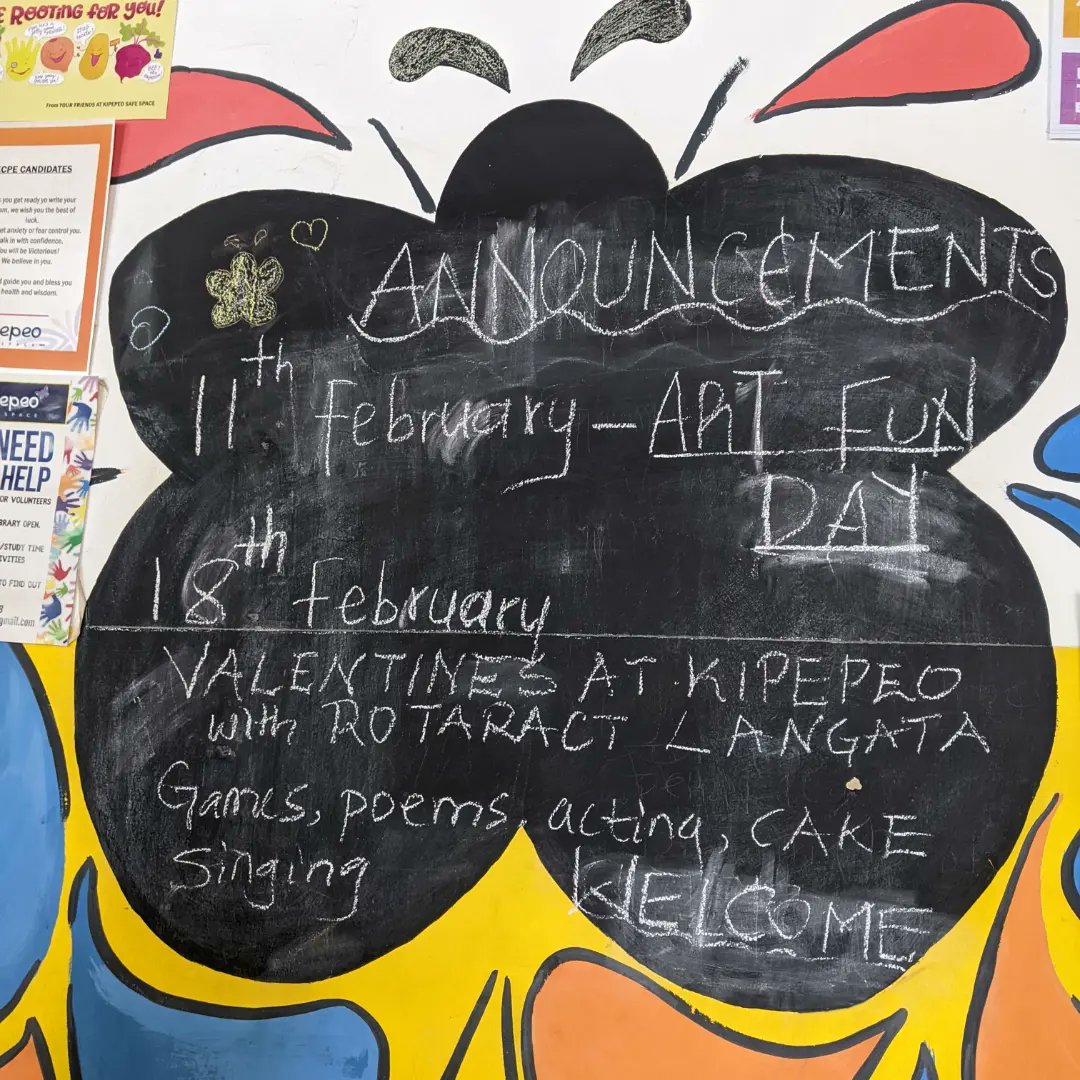 E ROOTING FOR YOU!
From YOUR FRIENDS AT KIPEPEO SAFE SPACE
CPE CANDIDATES
you get ready yo write your
m, we wish you the best of
luck.
et anxiety or fear control you.
alk in with confidence.
ou will be Victorious!
We believe in you.
d guide you and bless you
health and wisdom.
epeo
epeo
SPACE
NEED
HELP
OR VOLUNTEERS
BRARY OPEN.
/STUDY TIME
IVITIES
TO FIND OUT
8
gmail.com
ANNOUNCEMENTS
11th February - ART FUN
DAY
18th February
VALENTINES AT KIPEPEO
with ROTARACT LANGATA
Games, poems, acting, CAKE
Singing
WELCOME